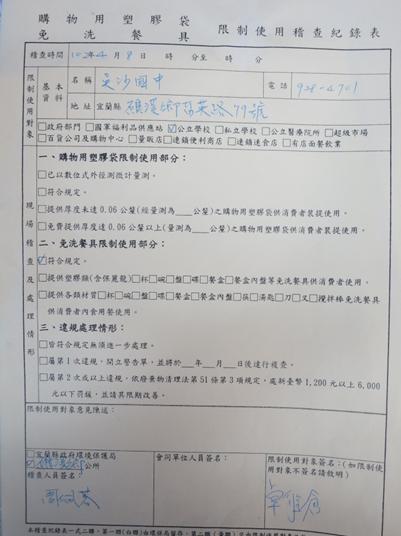 購物用塑膠袋
免洗餐具 限制使用稽查紀錄表
稽查時間 102年4月8日 時 分至 時 分
限制使用對象
基本資料
名稱 吳沙國中 電話 928-4701
地址 宜蘭縣 礁溪鄉 路79號
□政府部門 □國軍福利品供應站 ☑公立學校 □私立學校 □公立醫療院所 □超級市場
□百貨公司及購物中心 □量販店 □連鎖便利商店 □連鎖速食店 □有店面餐飲業
現場稽查及處理情形
一、購物用塑膠袋限制使用部分：
□已以數位式外徑測微計量測。
□符合規定。
□提供厚度未達0.06公釐(經量測為___公釐)之購物用塑膠袋供消費者裝提使用。
□免費提供厚度達0.06公釐以上(量測為___公釐)之購物用塑膠袋供消費者裝提使用。
二、免洗餐具限制使用部分：
☑符合規定。
□提供塑膠類(含保麗龍)□杯□碗□盤□碟□餐盒□餐盒內盤等免洗餐具供消費者使用。
□提供各類材質□杯□碗□盤□碟□餐盒□餐盒內盤□筷□湯匙□刀□叉□攪拌棒免洗餐具
供消費者內食用餐使用。
三、違規處理情形：
□皆符合規定無須進一步處理。
□屬第1次違規，開立警告單，並將於___年___月___日後進行複查。
□屬第2次或以上違規，依廢棄物清理法第51條第3項規定，處新臺幣1,200元以上6,000
元以下罰鍰，並請其限期改善。
限制使用對象意見陳述：
□宜蘭縣政府環境保護局
☑ 公所
稽查人員簽名：
會同單位人員簽名：
限制使用對象簽名：(如限制使用對象不簽名請敘明)